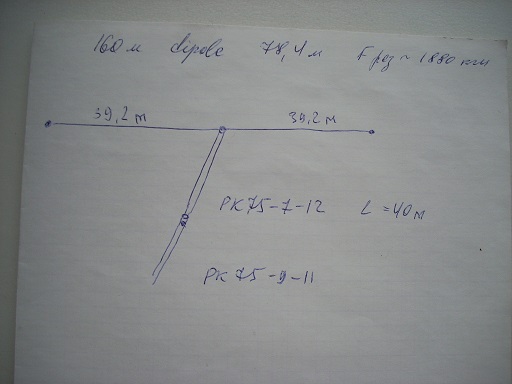 160 м 78,4 м F рез ~ 1880 кгц
39,2 м 39,2 м
РК 75-7-12 L = 40 м
РК 75-9-11